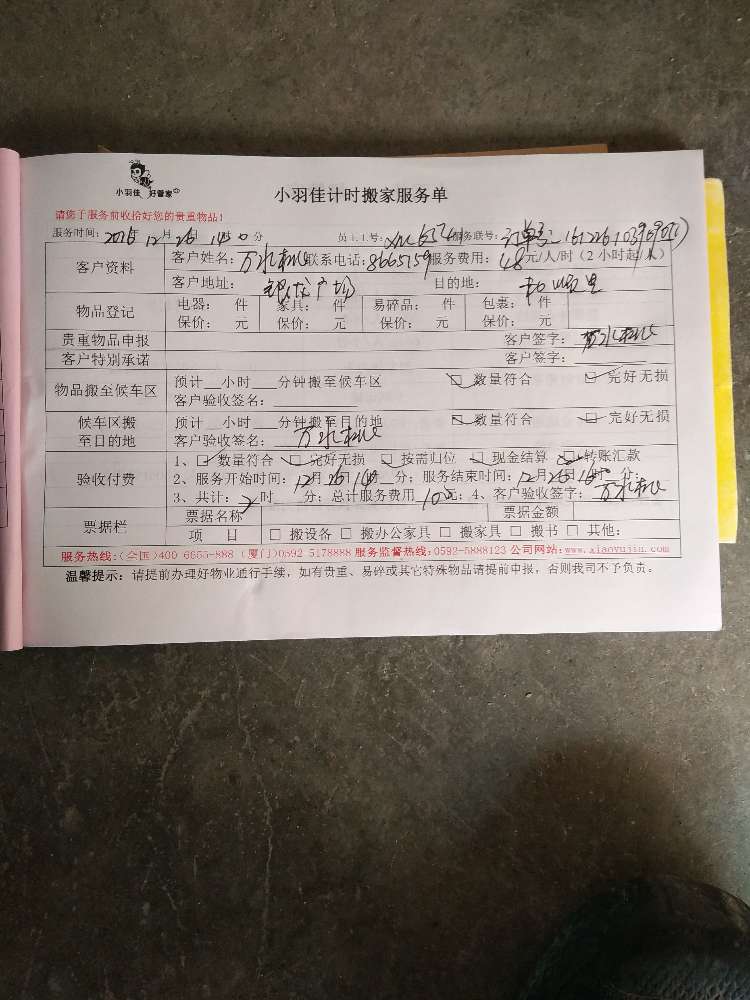 小羽佳 好管家
小羽佳计时搬家服务单
请您于服务前收拾好您的贵重物品！
服务时间：2016年12月26日14时0分 员工工号： 服务联号：订单号：
客户资料 客户姓名：万水 联系电话：8665759 服务费用：48元/人/时（2小时起/人）
客户地址：银龙广场 目的地：
物品登记 电器： 件 家具： 件 易碎品： 件 包裹： 件
保价： 元 保价： 元 保价： 元 保价： 元
贵重物品申报 客户签字：万水
客户特别承诺 客户签字：
物品搬至候车区 预计__小时___分钟搬至候车区 数量符合 完好无损
客户验收签名：
候车区搬至目的地 预计__小时___分钟搬至目的地 数量符合 完好无损
客户验收签名：万水
验收付费 1、数量符合 完好无损 按需归位 现金结算 转账汇款
2、服务开始时间：12月26日14时 分；服务结束时间：12月26日16时 分；
3、共计：2时 分；总计服务费用 元；4、客户验收签字：万水
票据栏 票据名称 票据金额
项 目 □ 搬设备 □ 搬办公家具 □ 搬家具 □ 搬书 □ 其他：
服务热线：（全国）400 6655-888（厦门）0592 5178888 服务监督热线：0592-5888123 公司网站：www.xiaoyujia.com
温馨提示：请提前办理好物业通行手续，如有贵重、易碎或其它特殊物品请提前申报，否则我司不予负责。